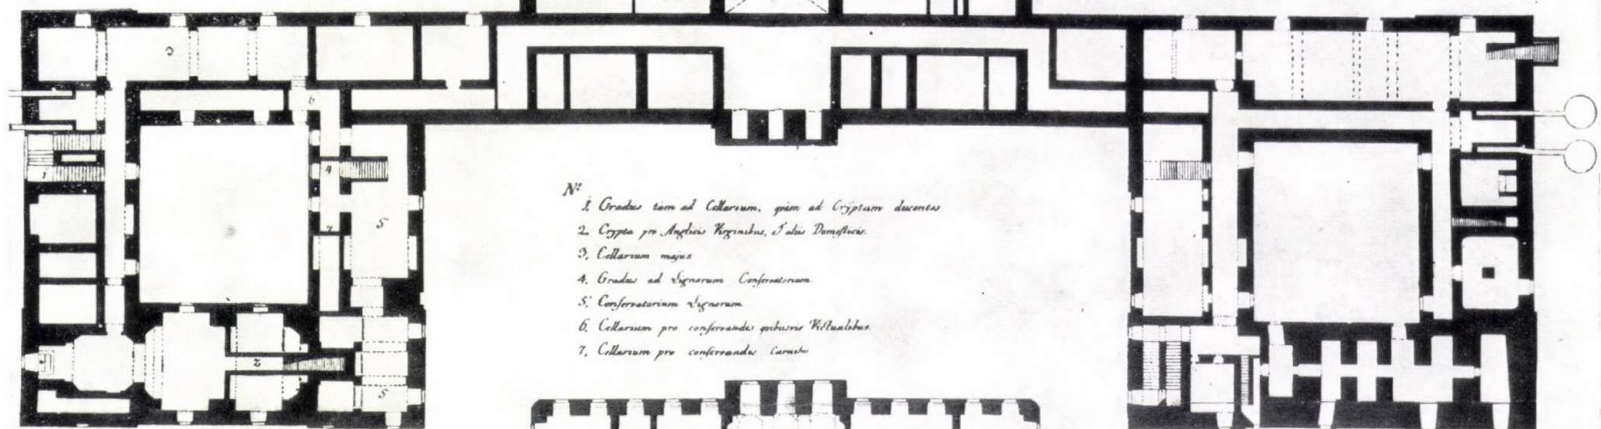 Nº
1. Gradus tam ad Cellarium, quam ad Cryptam ducentes
2. Crypta pro Anglicis Virginibus, et aliis Domesticis.
3. Cellarium majus
4. Gradus ad Lignorum Conservatorium
5. Conservatorium Lignorum
6. Cellarium pro conservandis quibusvis Victualibus.
7. Cellarium pro conservandis
3
6
1
4
5
7
2
5